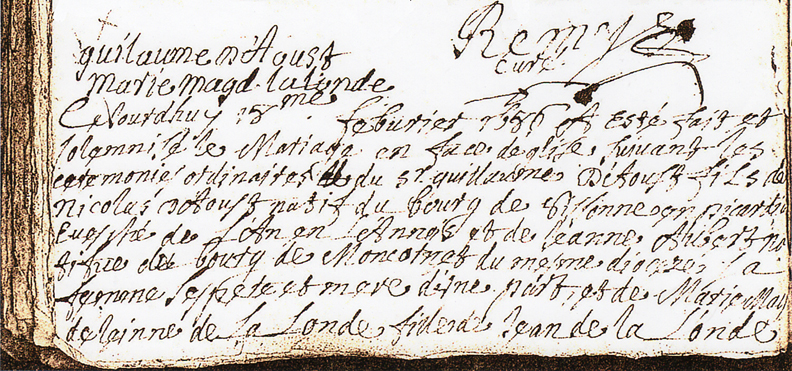 Remy
Curé
guilaume d'Aoust
Marie magd. lalonde
Ce Jourdhuy 18 me feburier 1686 A Esté fait et
solemnisé le Mariage en face deglise suivant les
ceremonies ordinaires du sr guillaume D'Aoust fils de
Nicolas d'Aoust natif du bourg de Sissonne en picardie
Evesché de en et de Jeanne Aubert na
tifue du bourg de Moncornet du mesme diocese, la
femme ses pere et mere d'une part, et de Marie Mag
delainne de La Londe fille de Jean de la Londe